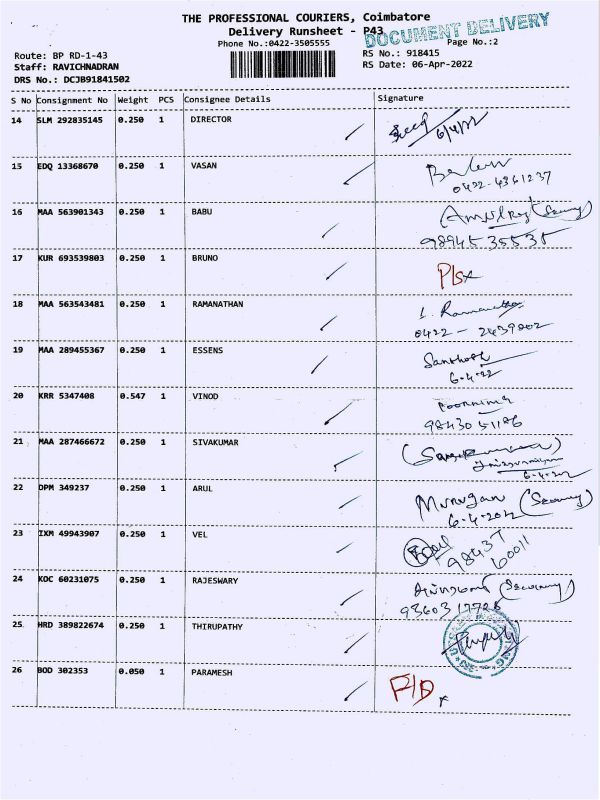 THE PROFESSIONAL COURIERS, Coimbatore
Delivery Runsheet - P43
DOCUMENT DELIVERY
Phone No.:0422-3505555 Page No.:2
Route: BP RD-1-43 RS No.: 918415
Staff: RAVICHNADRAN RS Date: 06-Apr-2022
DRS No.: DCJB91841502
S No Consignment No Weight PCS Consignee Details Signature
14 SLM 292835145 0.250 1 DIRECTOR 6/4/22
15 EDQ 13368670 0.250 1 VASAN
0422-4361237
16 MAA 563901343 0.250 1 BABU Amulraj (Security)
98945 35535
17 KUR 693539803 0.250 1 BRUNO
18 MAA 563543481 0.250 1 RAMANATHAN L. Ramanathan
0422 - 2439802
19 MAA 289455367 0.250 1 ESSENS Santhosh
6-4-22
20 KRR 5347408 0.547 1 VINOD Poornima
98430 51186
21 MAA 287466672 0.250 1 SIVAKUMAR
6-4-22
22 DPM 349237 0.250 1 ARUL Murugan (Security)
6-4-2022
23 IXM 49943907 0.250 1 VEL 98437
60011
24 KOC 60231075 0.250 1 RAJESWARY (Security)
9360317726
25 HRD 389822674 0.250 1 THIRUPATHY
26 BOD 302353 0.050 1 PARAMESH